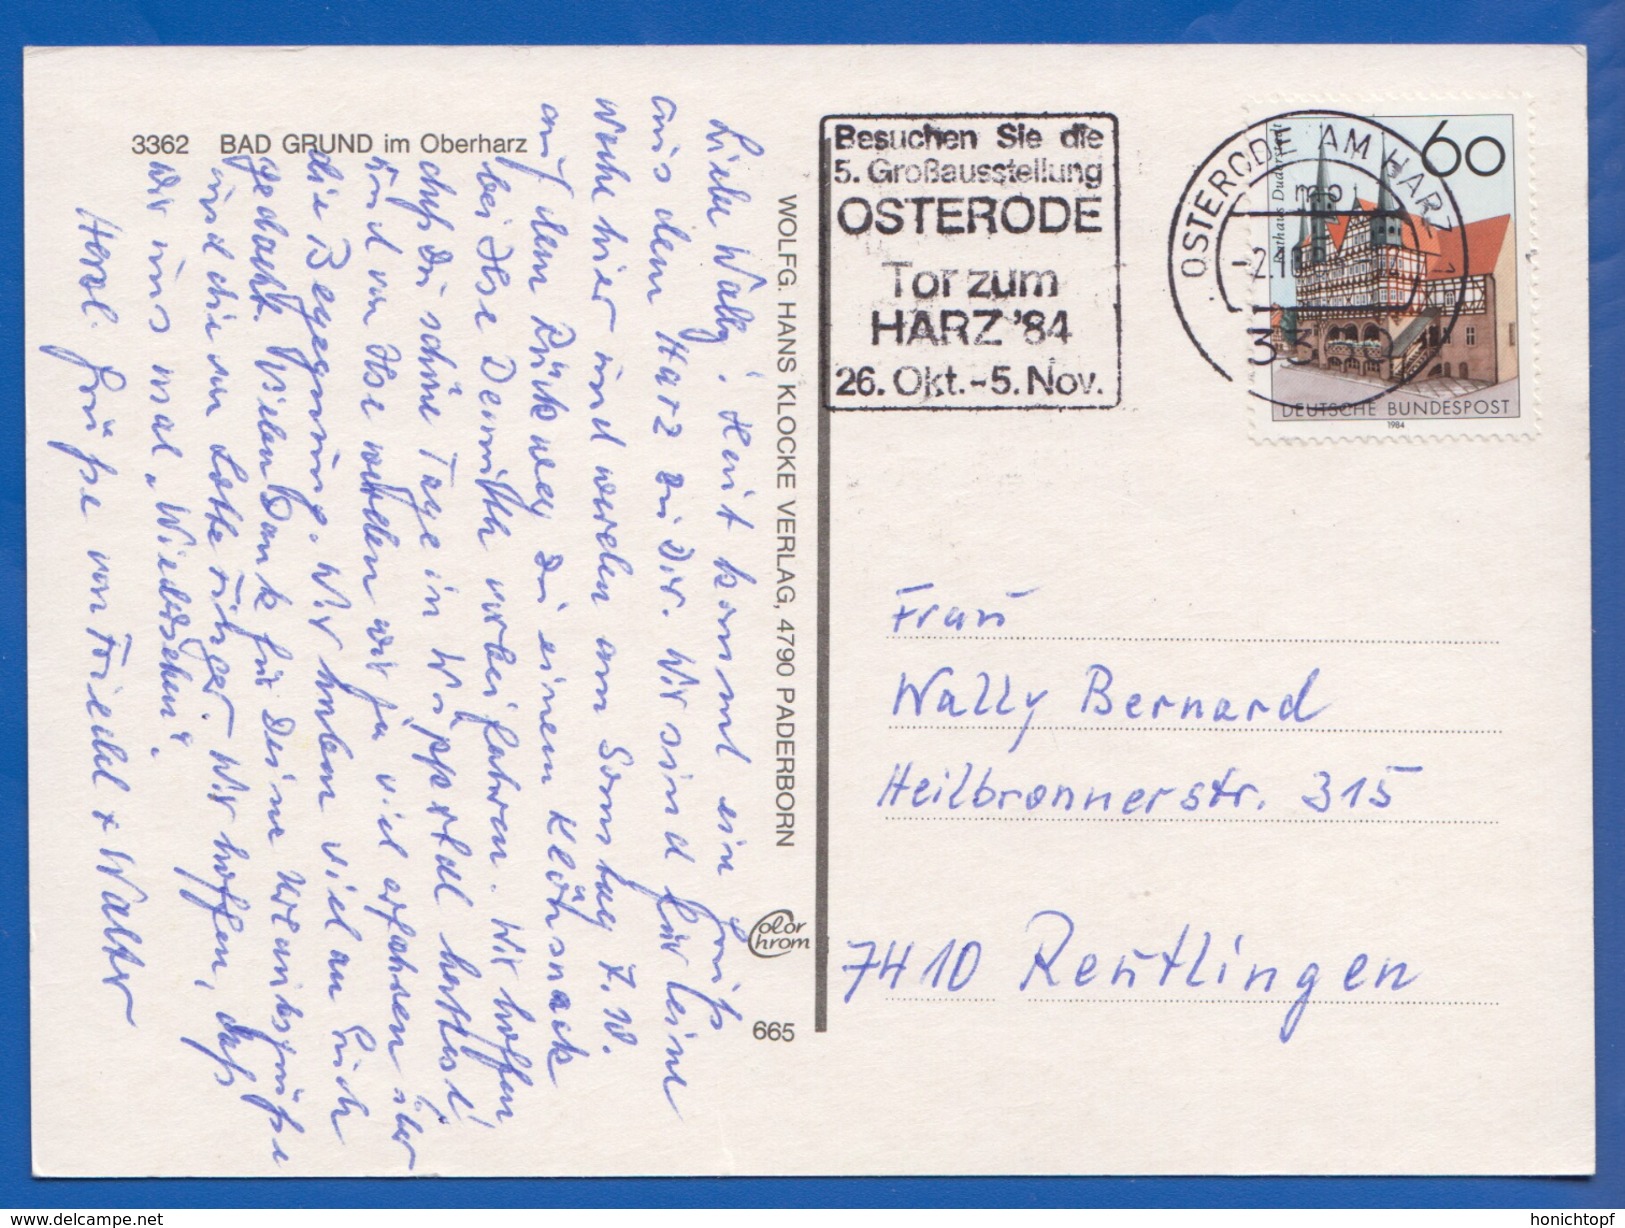 3362 BAD GRUND im Oberharz
Liebe Wally! Heut kommt ein Gruß
aus dem Harz zu Dir. Wir sind für eine
Woche hier und werden am Samstag z. W.
auf dem Rückweg zu einem Klöhnsnack
bei Ilse Demuth vorbeifahren. Wir hoffen
daß Du schöne Tage in Wuppertal hattest
und von Ilse werden wir ja viel erfahren über
die Begegnung. Wir haben viel an Euch
gedacht. Vielen Dank für Deine Urlaubsgrüße
und die von Lotte Wir hoffen, daß
wir uns mal „Wiedersehen".
Herzl. Grüße von Friedel + Walter
WOLFG. HANS KLOCKE VERLAG, 4790 PADERBORN
Color Chrom
665
Besuchen Sie die
5. Großausstellung
OSTERODE
Tor zum
HARZ '84
26. Okt.-5. Nov.
OSTERODE AM HARZ
mp
60
Rathaus Duderstadt
DEUTSCHE BUNDESPOST
1984
Frau
Wally Bernard
Heilbronnerstr. 315
7410 Reutlingen
www.delcampe.net
honichtopf